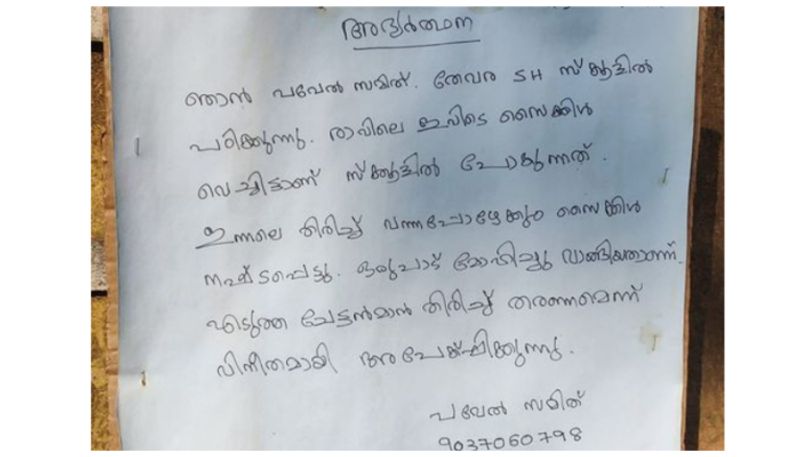 അഭ്യർത്ഥന
ഞാൻ പവേൽ സമിത്. തേവര SH സ്ക്കൂളിൽ
പഠിക്കുന്നു. രാവിലെ ഇവിടെ സൈക്കിൾ
വെച്ചിട്ടാണ് സ്ക്കൂളിൽ പോകുന്നത്.
ഇന്നലെ തിരിച്ച് വന്നപ്പോഴേക്കും സൈക്കിൾ
നഷ്ടപ്പെട്ടു. ഒരുപാട് മോഹിച്ചു വാങ്ങിയതാണ്.
എടുത്ത ചേട്ടൻമാർ തിരിച്ച് തരണമെന്ന്
വിനീതമായി അപേക്ഷിക്കുന്നു.
പവേൽ സമിത്
9037060798